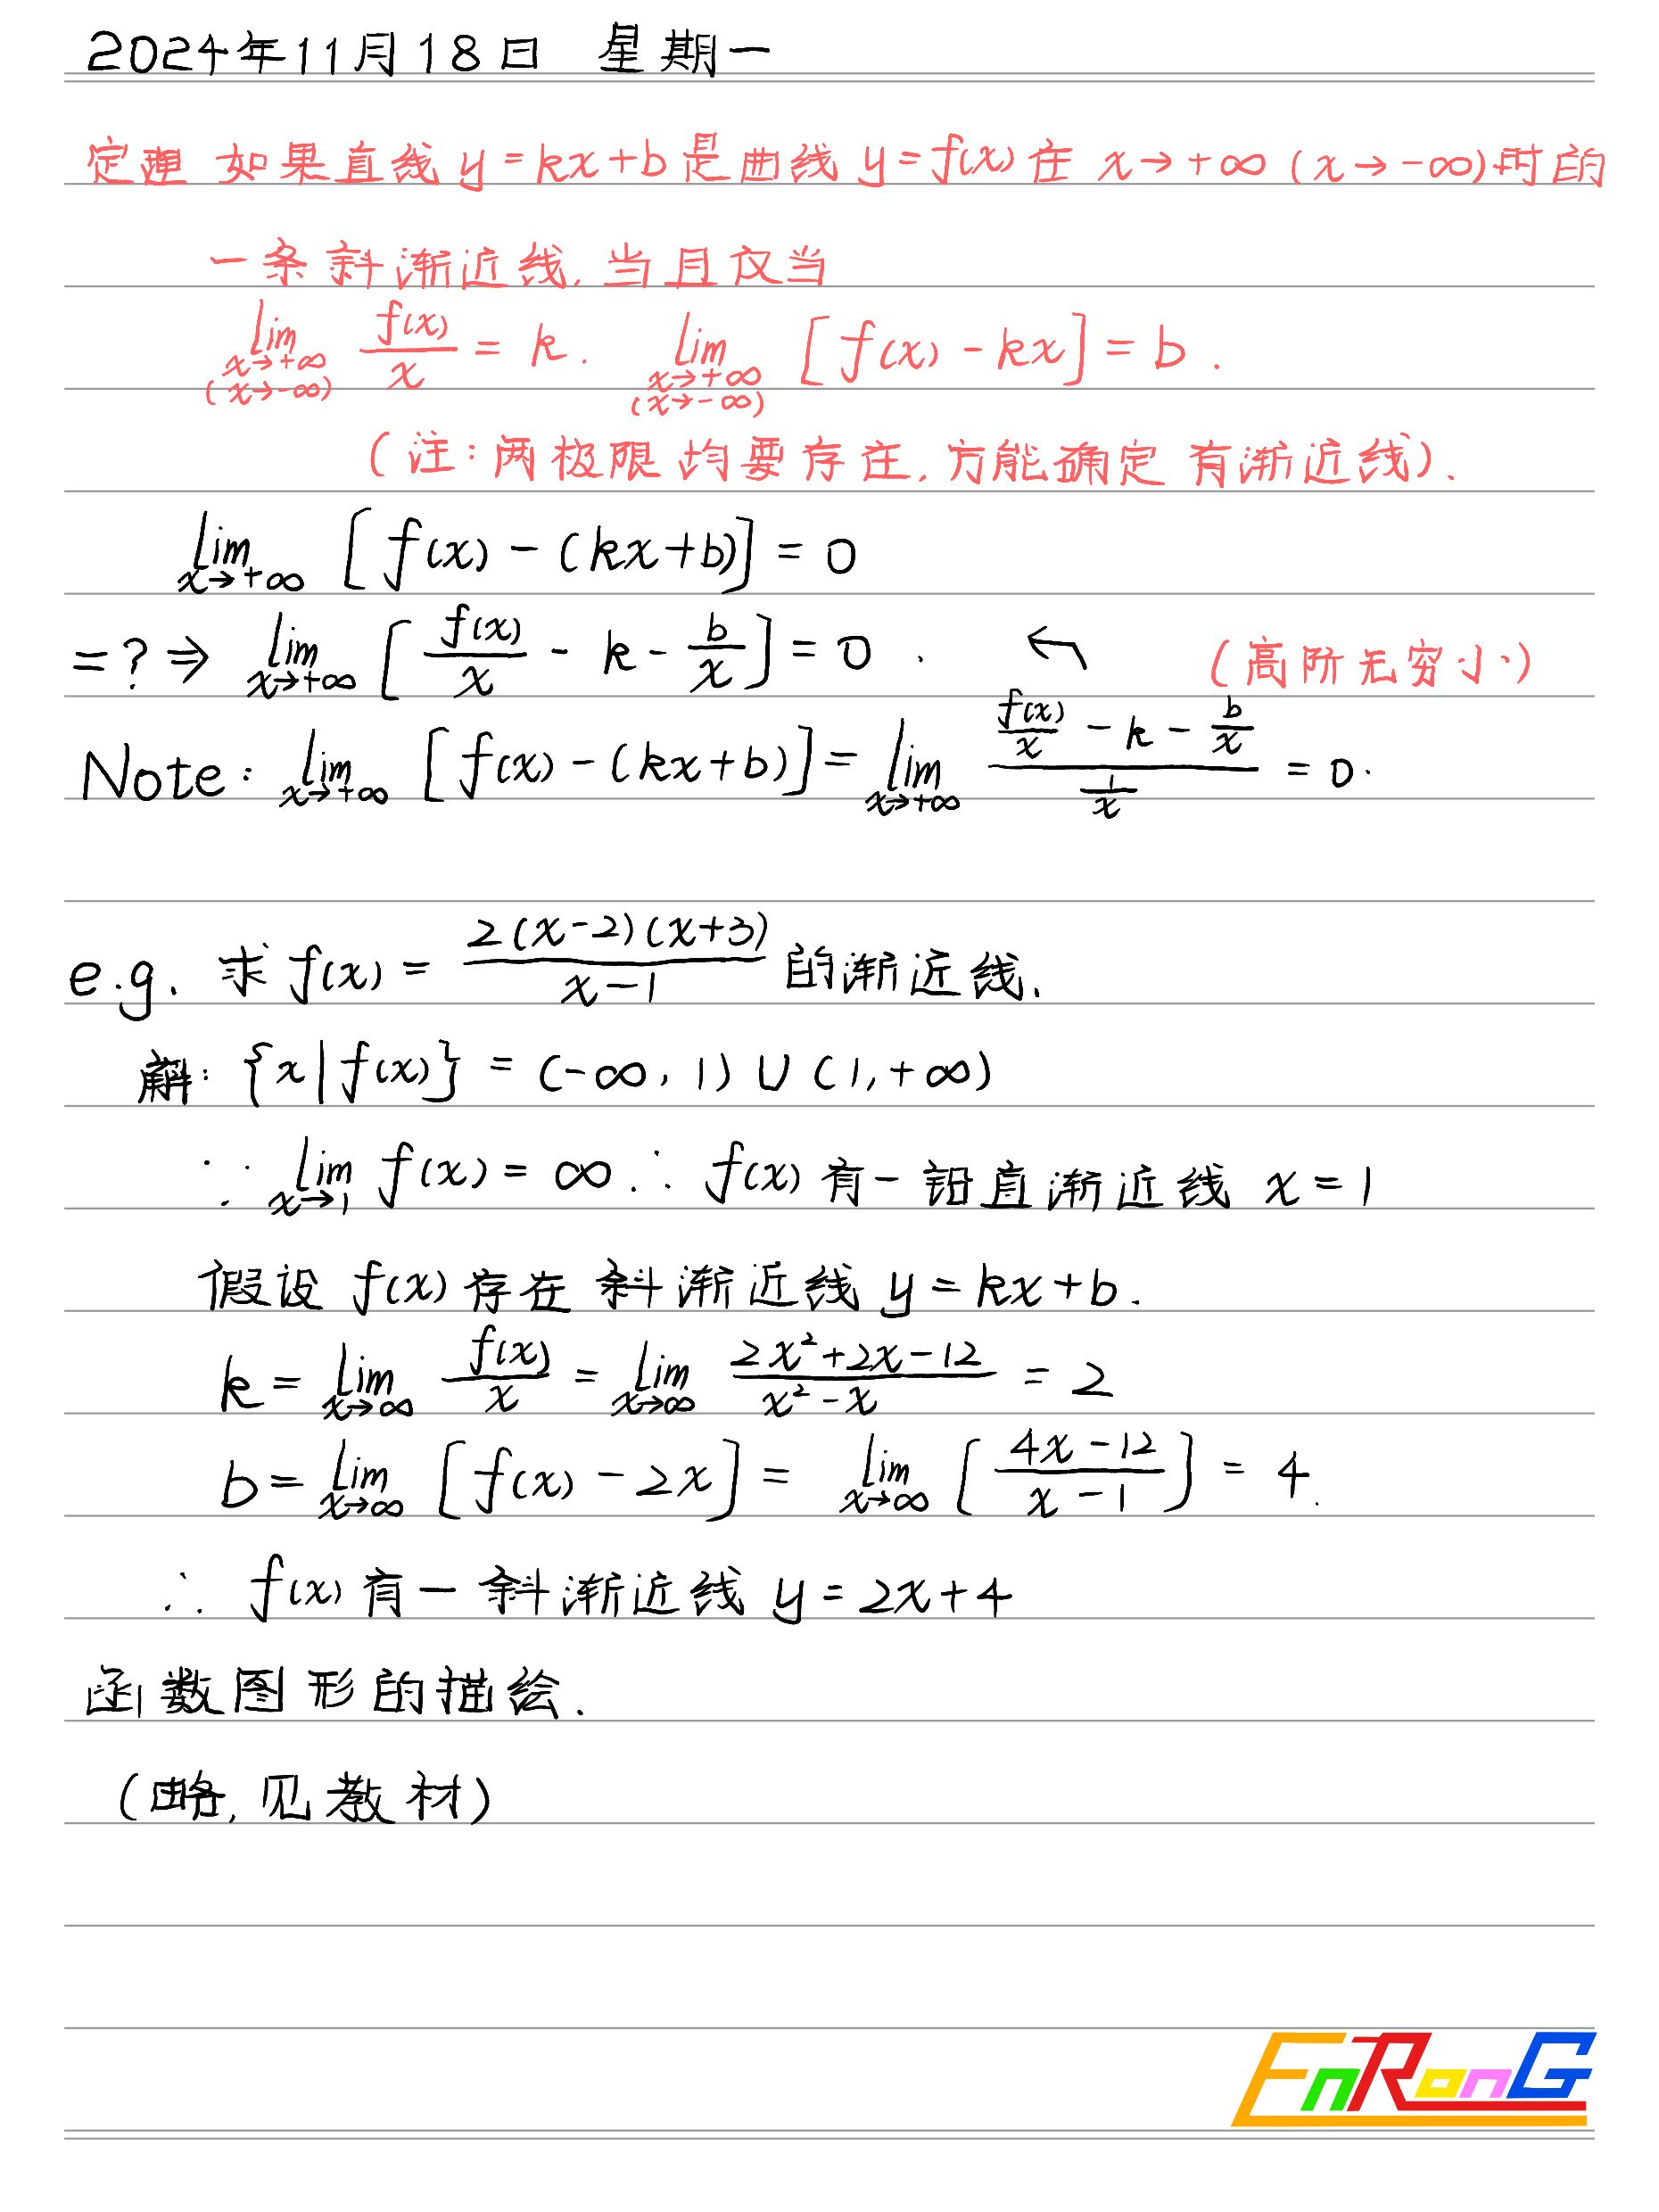 2024年11月18日 星期一
定理 如果直线 y=kx+b 是曲线 y=f(x) 在 x→+∞ (x→-∞) 时的
一条斜渐近线,当且仅当
lim_{x→+∞ (x→-∞)} f(x)/x = k. lim_{x→+∞ (x→-∞)} [f(x)-kx] = b.
(注:两极限均要存在,方能确定有渐近线).
lim_{x→+∞} [f(x)-(kx+b)] = 0
=?⇒ lim_{x→+∞} [f(x)/x - k - b/x] = 0. ↖ (高阶无穷小)
Note: lim_{x→+∞} [f(x)-(kx+b)] = lim_{x→+∞} (f(x)/x - k - b/x)/(1/x) = 0.
e.g. 求 f(x) = 2(x-2)(x+3)/(x-1) 的渐近线.
解: {x|f(x)} = (-∞,1)∪(1,+∞)
∵ lim_{x→1} f(x) = ∞ ∴ f(x) 有一铅直渐近线 x=1
假设 f(x) 存在斜渐近线 y=kx+b.
k = lim_{x→∞} f(x)/x = lim_{x→∞} (2x²+2x-12)/(x²-x) = 2
b = lim_{x→∞} [f(x)-2x] = lim_{x→∞} [(4x-12)/(x-1)] = 4.
∴ f(x) 有一斜渐近线 y=2x+4
函数图形的描绘.
(略,见教材)
EnRonG